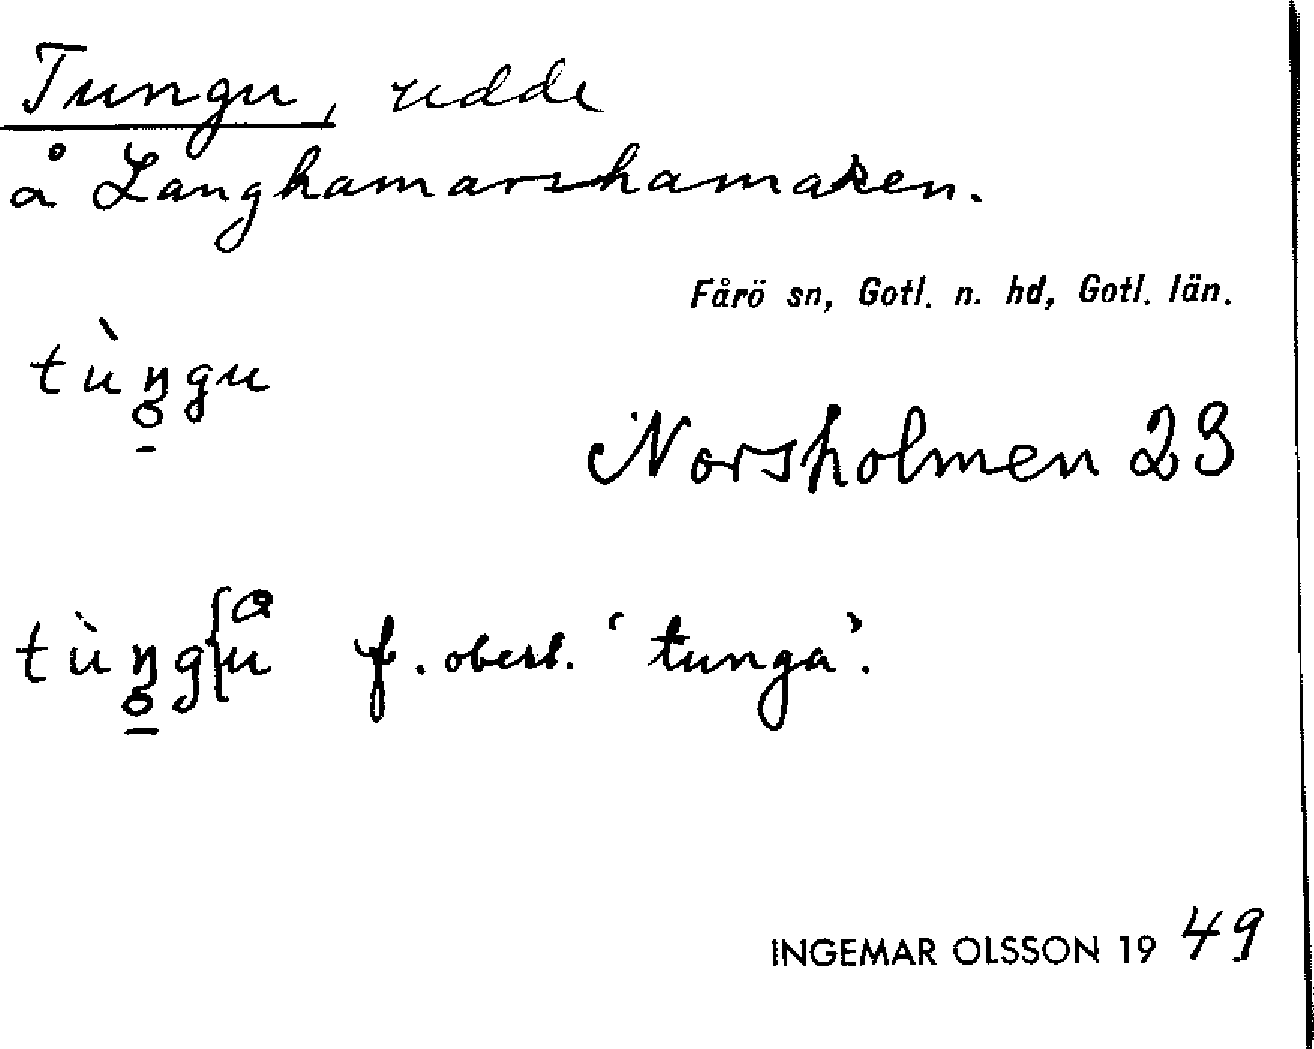 Tungu, udde
å Langhamarshamaren.
Fårö sn, Gotl. n. hd, Gotl. län.
tùŋgu
Norsholmen 23
tùŋg{a/u f. obest. ‘tunga’.
INGEMAR OLSSON 1949